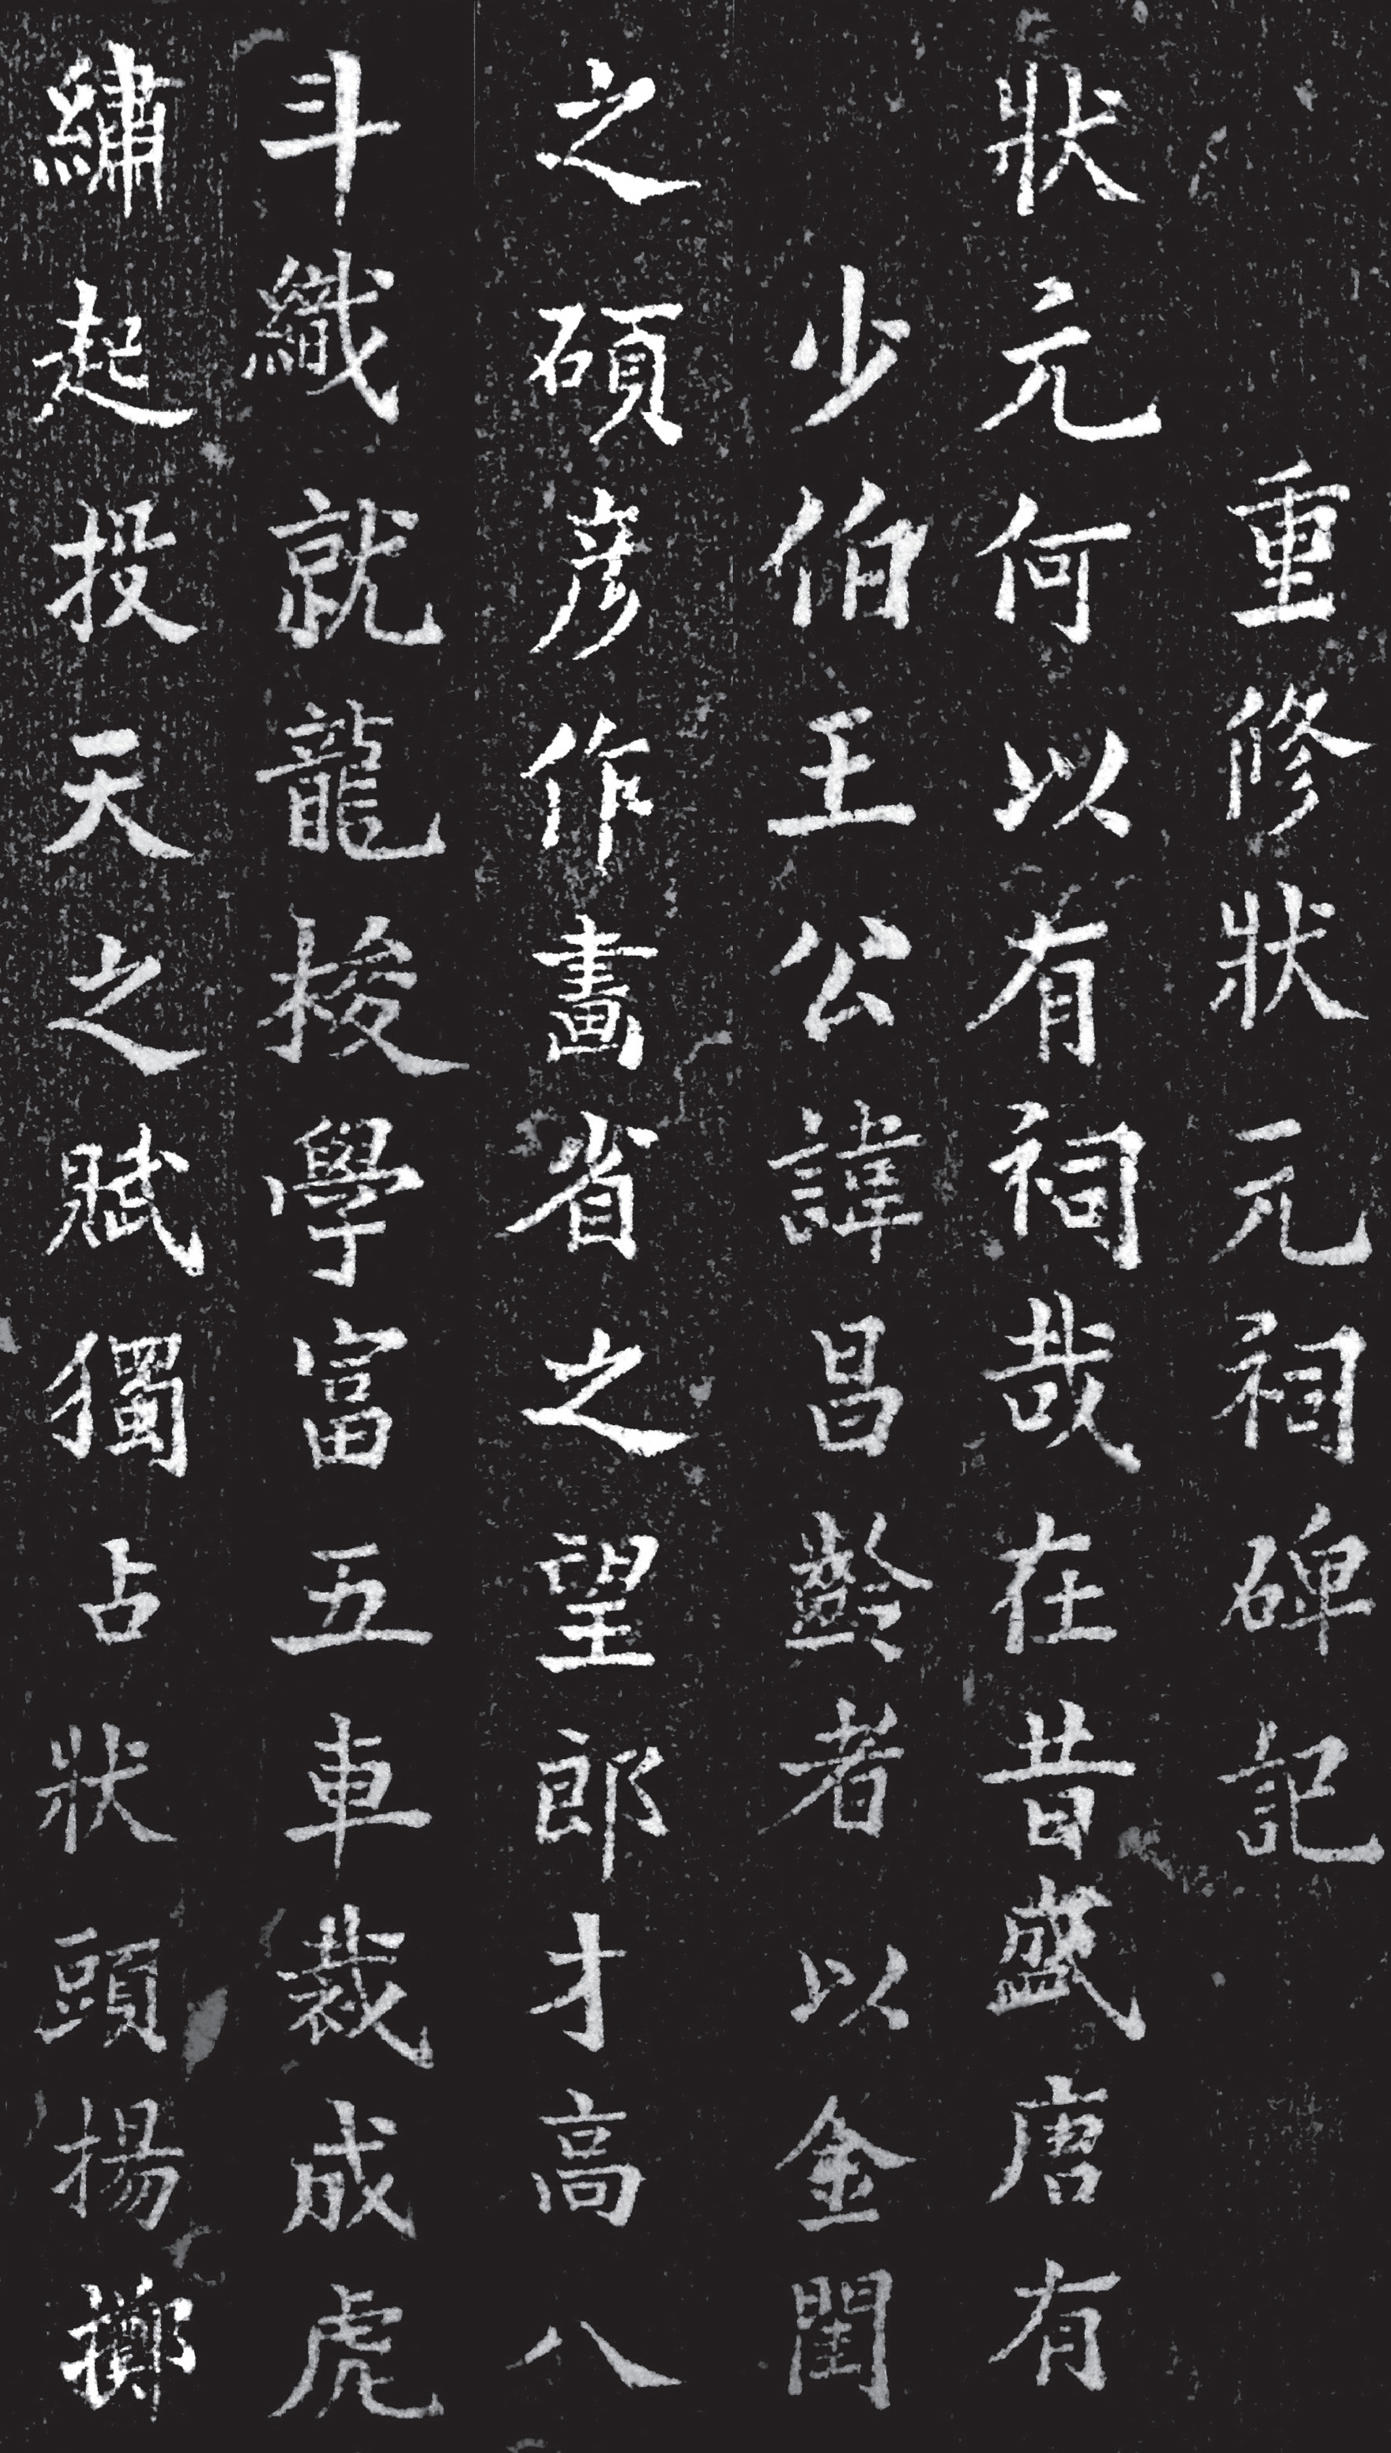 重修狀元祠碑記
狀元何以有祠哉在昔盛唐有
少伯王公諱昌齡者以金閨
之碩彥作畫省之望郎才高八
斗織就龍梭學富五車裁成虎
繡起投天之賦獨占狀頭揚擲